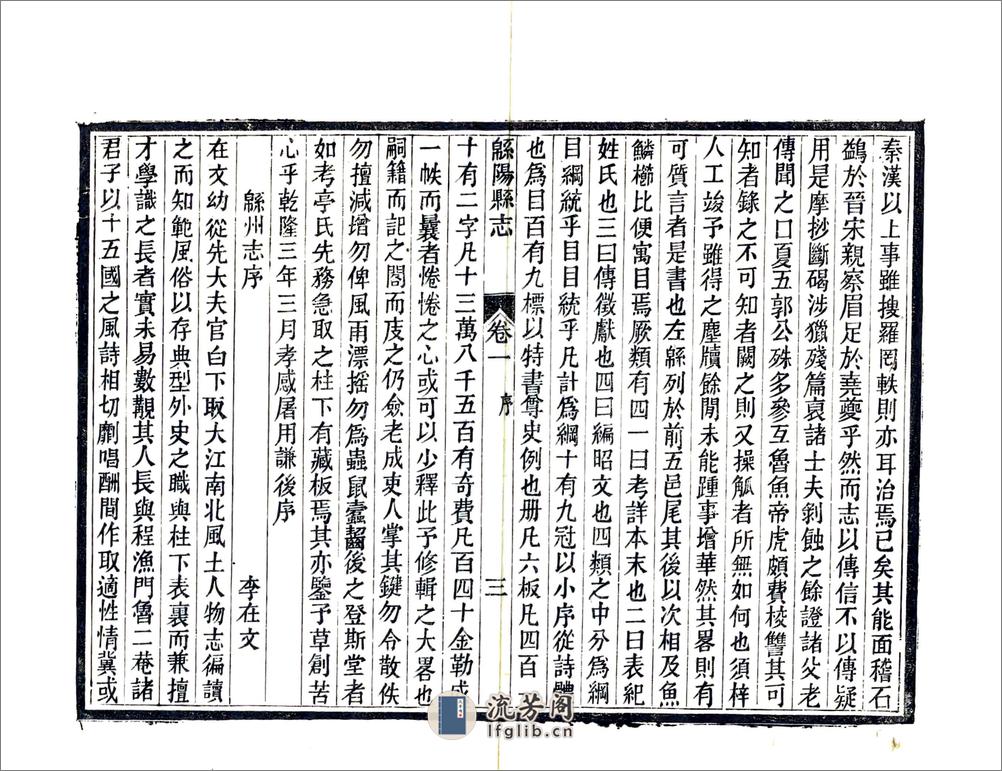 秦漢以上事雖搜羅罔軼則亦耳治焉已矣其能面稽石
鷁於晉宋親察眉足於堯夔乎然而志以傳信不以傳疑
用是摩抄斷碣涉獵殘篇裒諸士夫剝蝕之餘證諸父老
傳聞之口夏五郭公殊多參互魯魚帝虎頗費棱讐其可
知者錄之不可知者闕之則又操觚者所無如何也須梓
人工竣予雖得之塵牘餘閒未能踵事增華然其畧則有
可質言者是書也左緜列於前五邑尾其後以次相及魚
鱗櫛比便寓目焉厥類有四一曰考詳本末也二曰表紀
姓氏也三曰傳徵獻也四曰編昭文也四類之中分爲綱
目綱統乎目目統乎凡計爲綱十有九冠以小序從詩體
也爲目百有九標以特書尊史例也册凡六板凡四百
緜陽縣志 卷一 序 三
十有二字凡十三萬八千五百有奇費凡百四十金勒成
一帙而曩者惓惓之心或可以少釋此予修輯之大畧也
嗣籍而記之閣而庋之仍僉老成吏人掌其鍵勿令散佚
勿擅減增勿俾風雨漂摇勿爲蟲鼠蠹齧後之登斯堂者
如考亭氏先務急取之柱下有藏板焉其亦鑒予草創苦
心乎乾隆三年三月孝感屠用謙後序
緜州志序 李在文
在文幼從先大夫官白下取大江南北風土人物志徧讀
之而知範風俗以存典型外史之職與柱下表裏而兼擅
才學識之長者實未易數覯其人長與程漁門魯二菴諸
君子以十五國之風詩相切劘唱酬間作取適性情冀或
流芳阁
lfglib.cn